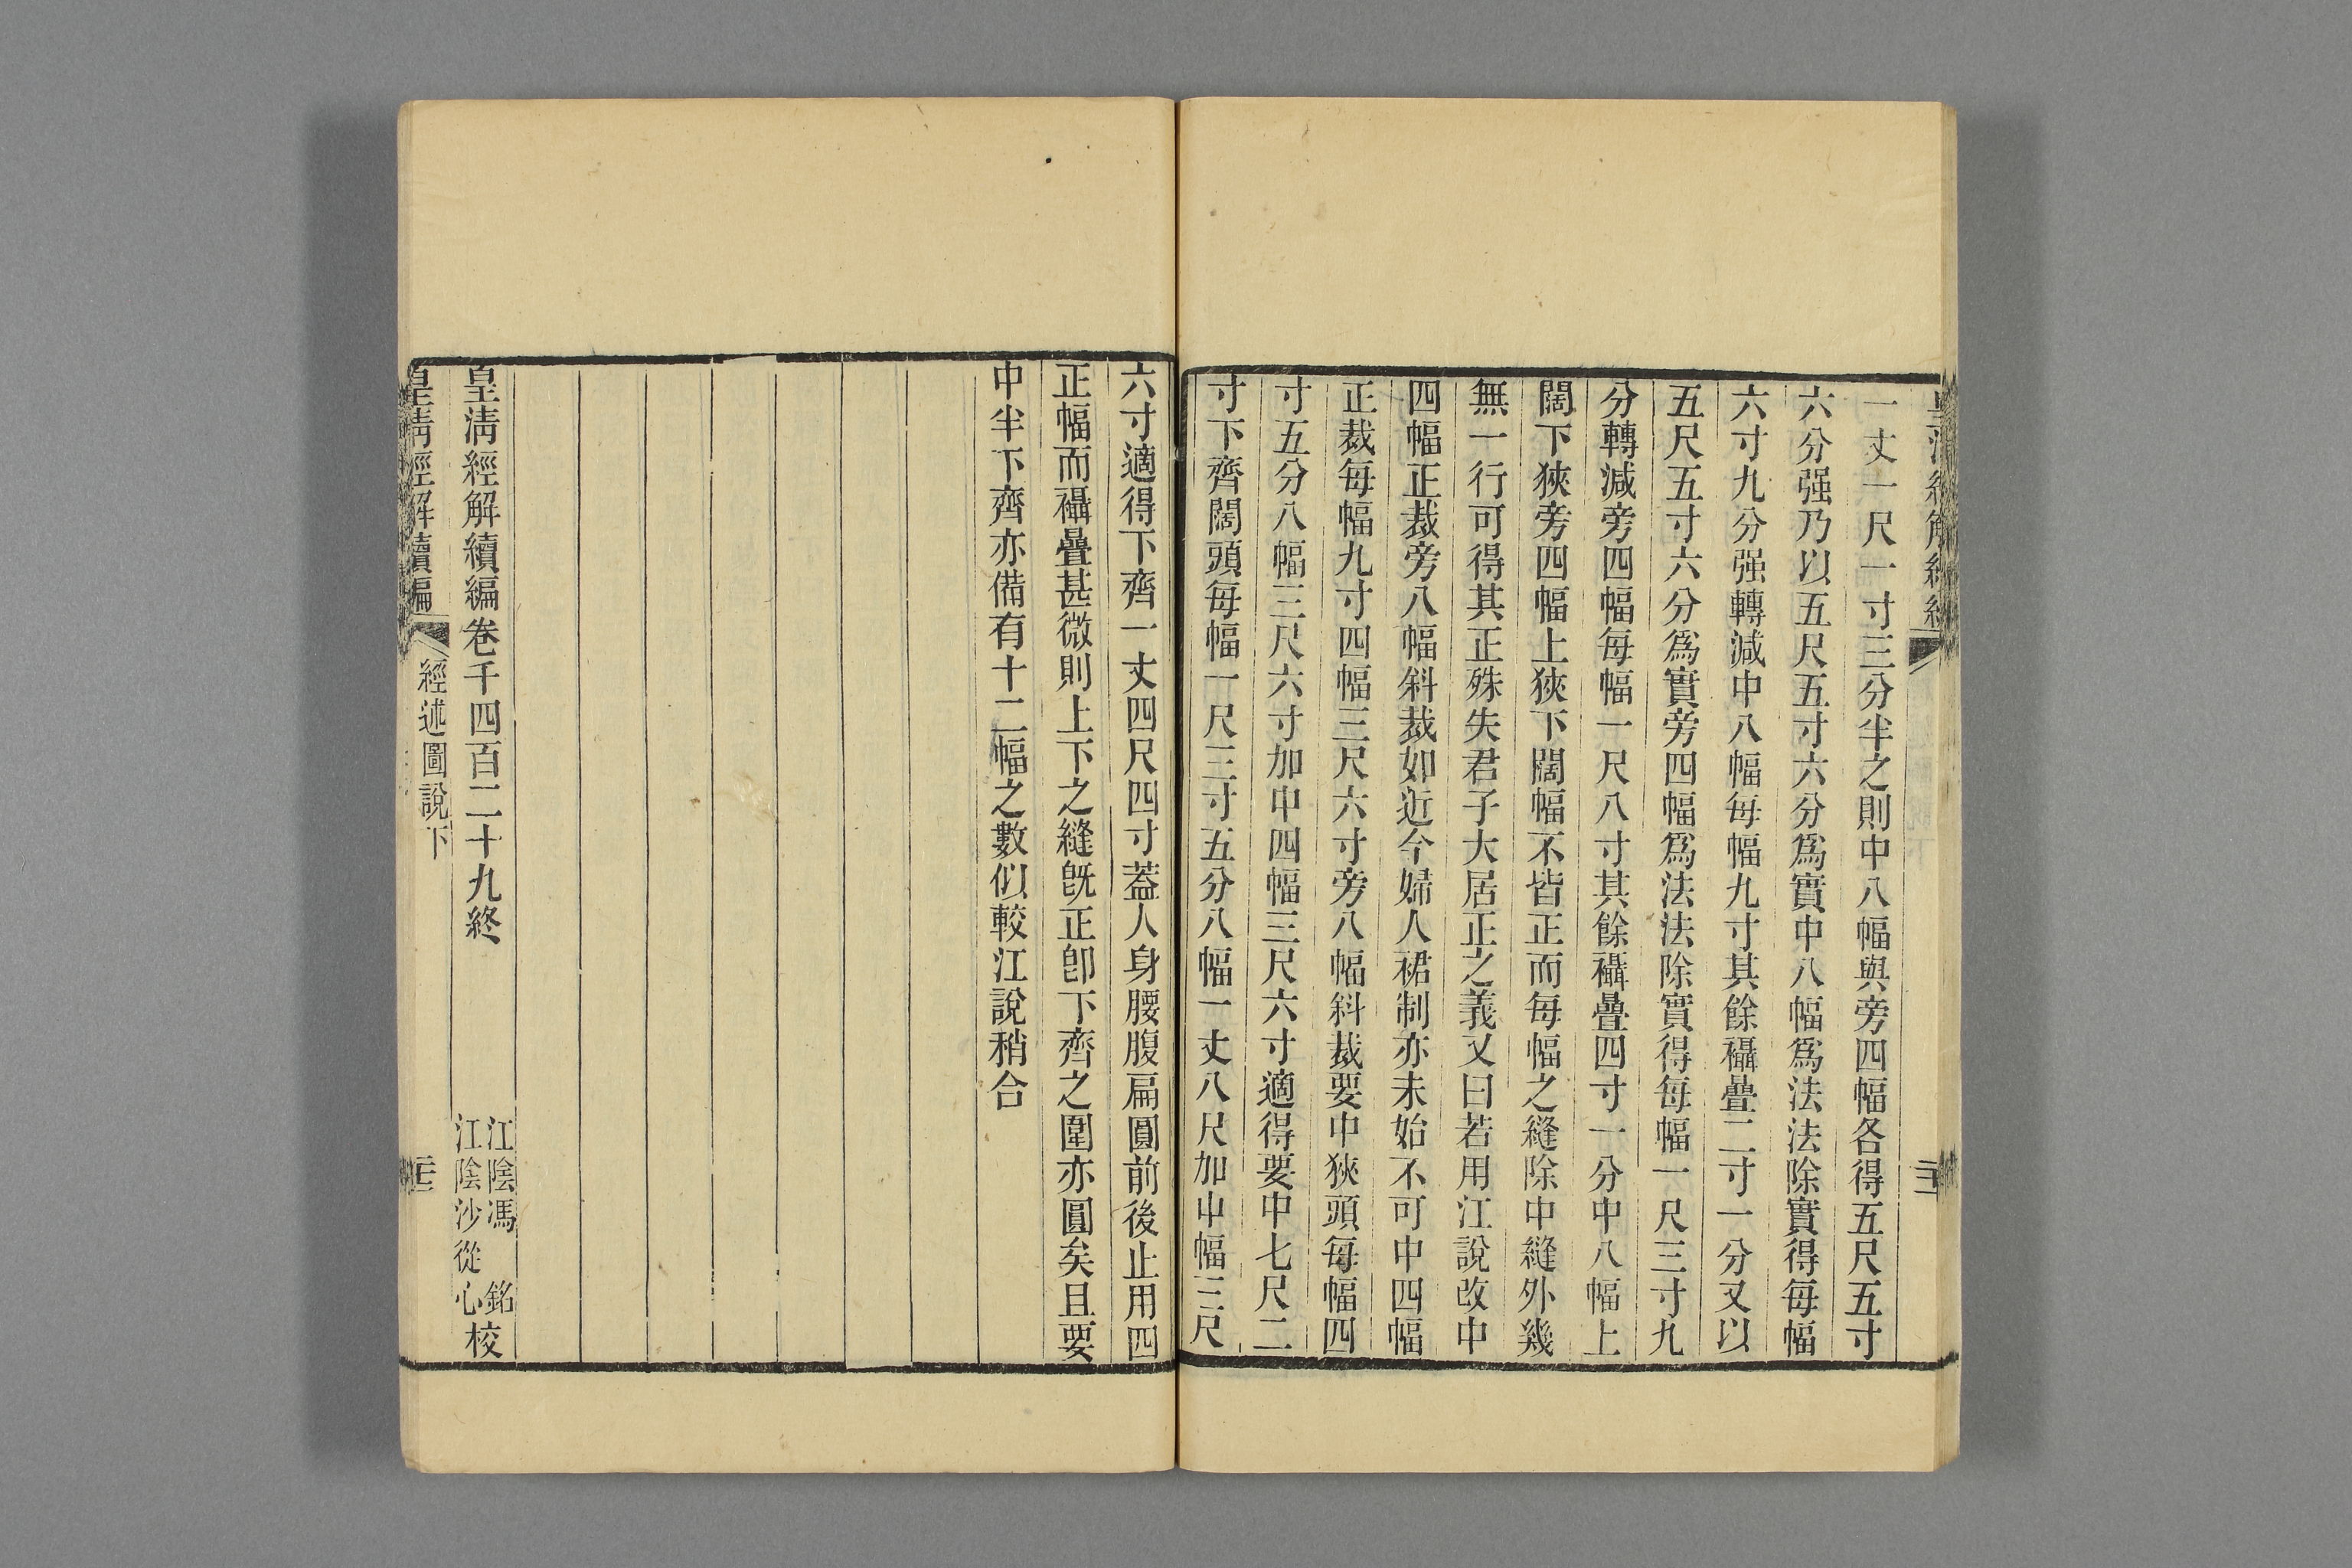 一丈一尺一寸三分半之則中八幅與旁四幅各得五尺五寸
六分强乃以五尺五寸六分爲實中八幅爲法法除實得每幅
六寸九分强轉減中八幅每幅九寸其餘襵疊二寸一分又以
五尺五寸六分爲實旁四幅爲法法除實得每幅一尺三寸九
分轉減旁四幅每幅一尺八寸其餘襵疊四寸一分中八幅上
闊下狹旁四幅上狹下闊幅不皆正而每幅之縫除中縫外幾
無一行可得其正殊失君子大居正之義又曰若用江說改中
四幅正裁旁八幅斜裁如近今婦人裙制亦未始不可中四幅
正裁每幅九寸四幅三尺六寸旁八幅斜裁要中狹頭每幅四
寸五分八幅三尺六寸加中四幅三尺六寸適得要中七尺二
寸下齊闊頭每幅一尺三寸五分八幅一丈八寸加中幅三尺
六寸適得下齊一丈四尺四寸蓋人身腰腹扁圓前後止用四
正幅而襵疊甚微則上下之縫旣正卽下齊之圍亦圓矣且要
中半下齊亦備有十二幅之數似較江說稍合
皇淸經解續編卷千四百二十九終
江陰馮銘
江陰沙從心校
皇淸經解續編 經述圖說下